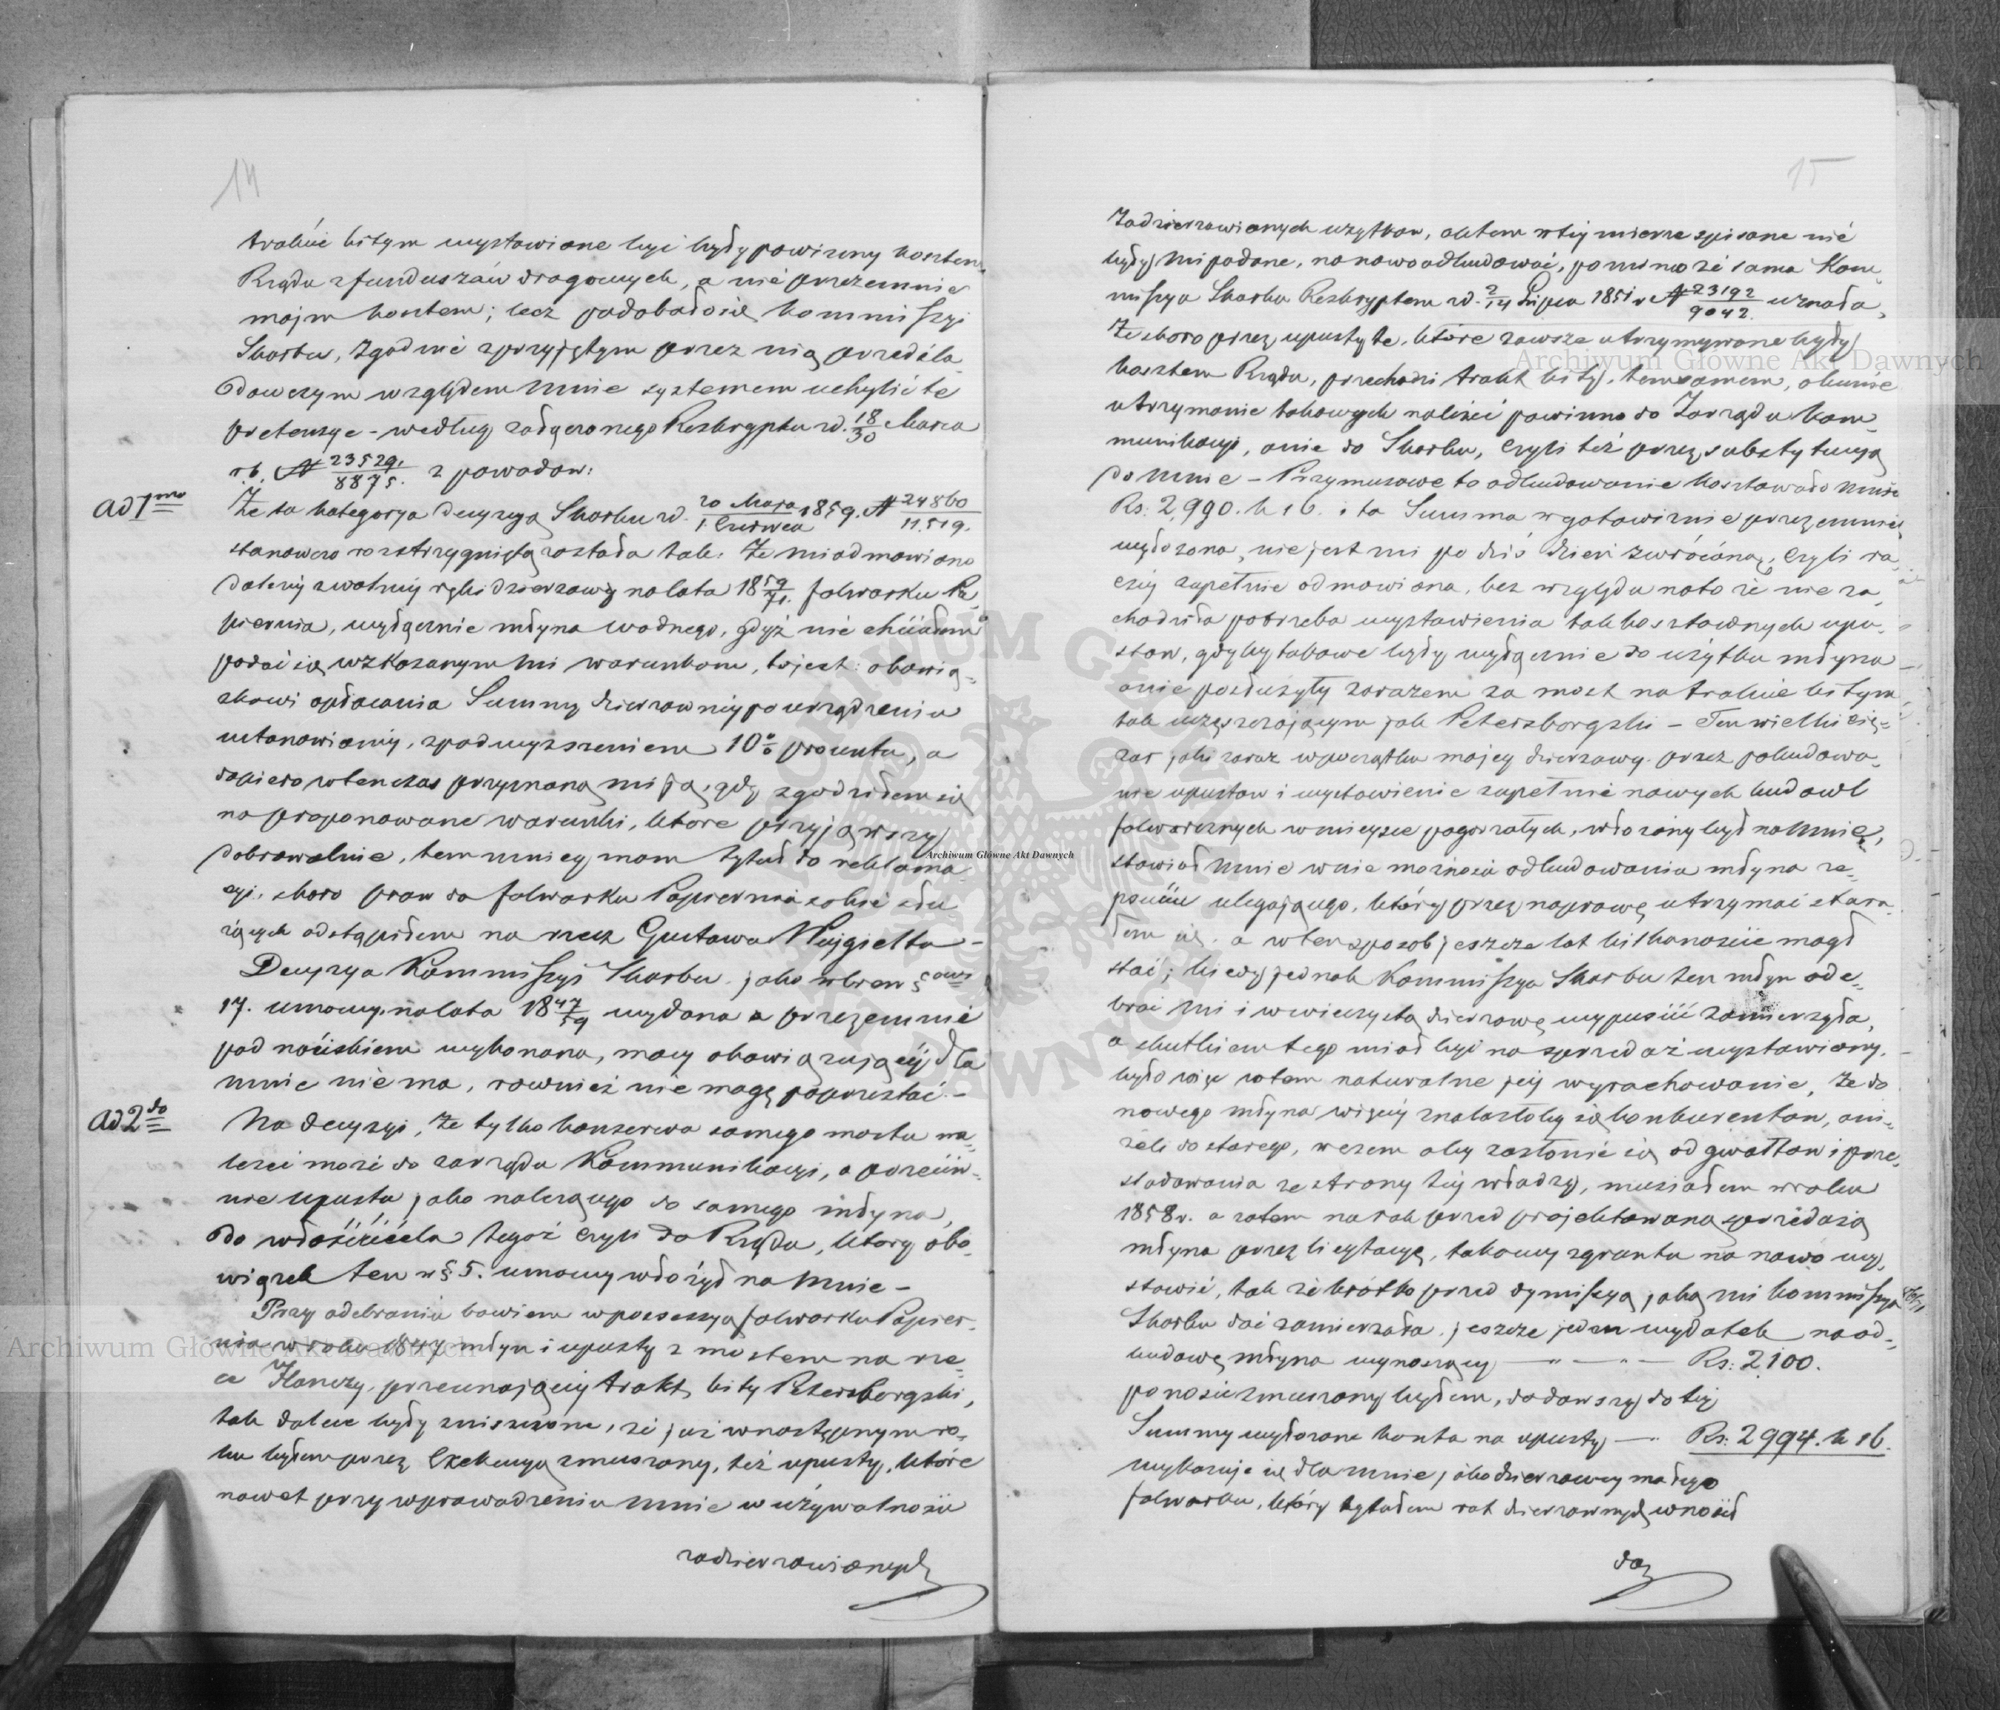 14
trakcie bitym wystawione być były powinny kosztem
Rządu z funduszów drogowych, a nie przezemnie
moim kosztem; lecz podobało się Kommissyi
Skarbu, zgodnie z przyjętym przez nią prześla-
dowczym względem mnie systemem uchylić te
pretensye – według załączonego Reskryptu z d. 18/30 Marca
r. b. № 23529/8875. z powodów:
ad 1mo Że ta kategorya decyzyą Skarbu z d. 20 Maja/1 Czerwca 1859. № 24860/11.519.
stanowczo rozstrzygniętą została tak. Że mi odmówiono
dalszej z wolnej ręki dzierżawy na lata 18 59/71. folwarku Pa-
piernia, wyłącznie młyna wodnego, gdyż nie chciałem
poddać się wskazanym mi warunkom, to jest: obowią-
zkowi opłacania Summy dzierżawnej po urządzeniu
ustanowionej, z podwyższeniem 10% procentu, a
dopiero wtenczas przyznaną mi ją, gdy zgodziłem się
na proponowane warunki, które przyjąwszy
dobrowolnie, tem mniej mam tytuł do reklama-
cyi, skoro praw do folwarku Papiernia sobie słu-
żących odstąpiłem na rzecz Gustawa Wejgielta –
Decyzya Kommissyi Skarbu jako wbrew §owi
17. umowy na lata 18 47/59 wydana a przezemnie
pod naciskiem wykonana, mocy obowiązującej dla
mnie nie ma, również nie mogę poprzestać –
ad 2do Na decyzyi, że tylko konserwa samego mostu na-
leżeć może do zarządu Kommunikacyi, a przeciw-
nie upustu jako należącego do samego młyna,
do właściciela tegoż czyli do Rządu, który obo-
wiązek ten w § 5. umowy włożył na mnie –
Przy odebraniu bowiem w possessyą folwarku Papier-
nia w roku 1847 młyn i upusty z mostem na rze-
ce Hańczy, przecinającej trakt bity Petersborgski,
tak dalece były zniszczone, że już w następnym ro-
ku byłem przez Exekucyą zmuszony, też upusty, które
nawet przy wprowadzeniu mnie w używalność
zadzierzawionych
15
Zadzierżawionych użytków, aktem w tej mierze spisane nie
były mi podane, na nowo odbudować, pomimo że sama Kom-
missya Skarbu Reskryptem z d. 2/14 Lipca 1851 r № 23192/9042. uznała,
Że skoro przez upusty te, które zawsze utrzymywane były
kosztem Rządu, przechodzi trakt bity, temsamem, obecnie
utrzymanie takowych należeć powinno do Zarządu Kom-
munikacyi, a nie do Skarbu, czyli też przez substytucyą
do mnie – Przymusowe to odbudowanie kosztowało mnie
Rs: 2,990. k 16. i ta Summa w gotowiźnie przezemnie
wyłożona, nie jest mi po dziś dzień zwróconą, czyli ra-
czej zupełnie odmówiona, bez względu na to że nie za-
chodziła potrzeba wystawienia tak kosztownych upu-
stów, gdyby takowe były wyłącznie do użytku młyna
a nie posłużyły zarazem za most na trakcie bitym
tak uczęszczającym jak Petersborgski – Ten wielki cię-
żar jaki zaraz w początku mojej dzierżawy przez pobudowa-
nie upustów i wystawienie zupełnie nowych budowl
folwarcznych w miejsce pogorzałych, włożony był na mnie,
stawiał mnie w nie możności odbudowania młyna ze-
psuciu ulegającego, który przez naprawę utrzymać stara-
łem się, a w ten sposób jeszcze lat kilkanaście mógł
stać; kiedy jednak Kommissya Skarbu ten młyn ode-
brać mi i w wieczystą dzierżawę wypuścić zamierzyła,
a skutkiem tego miał być na sprzedaż wystawiony,
było więc w tem naturalne jej wyrachowanie, że do
nowego młyna więcej znalazłoby się konkurentów, ani-
żeli do starego, wczem aby zasłonić się od gwałtów i prze-
śladowania ze strony tej władzy, musiałem w roku
1858 r. a zatem na rok przed projektowaną sprzedażą
młyna przez licytacyę, takowy z gruntu na nowo wy-
stawić, tak że krótko przed dymissyą jaką mi Kommissya
Skarbu dać zamierzała, jeszcze jeden wydatek na od-
budowę młyna wynoszący — " — " — Rs: 2,100.
ponosić zmuszony byłem, dodawszy do tej
Summy wyłożone konta na upusty — " Rs: 2994. k 16.
wykazuje się dla mnie jako dzierżawcy małego
folwarku, który tytułem rat dzierżawnych wnosił